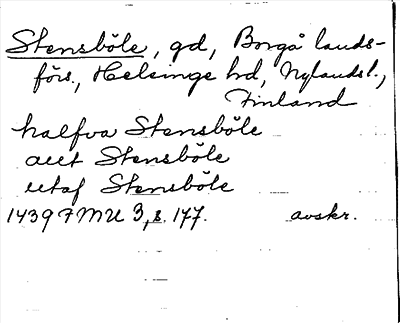 Stensböle, gd, Borgå lands-
förs., Helsinge hd, Nylandsl.,
Finland
halfva Stensböle
aut Stensböle
utaf Stensböle
1439 FMU 3, s. 177. avskr.